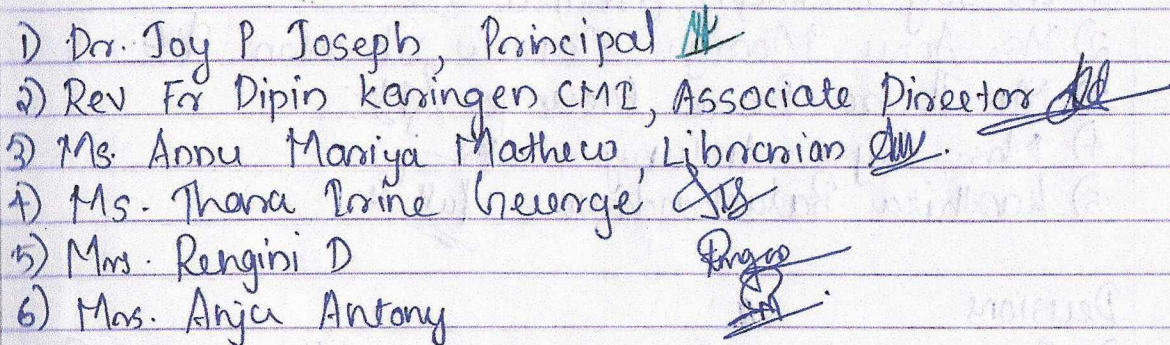 1) Dr. Joy P Joseph, Principal
2) Rev Fr Dipin Karingen CMI, Associate Director
3) Ms. Annu Mariya Mathew, Librarian
4) Ms. Thara Irine George
5) Mrs. Rengini D
6) Mrs. Anju Antony